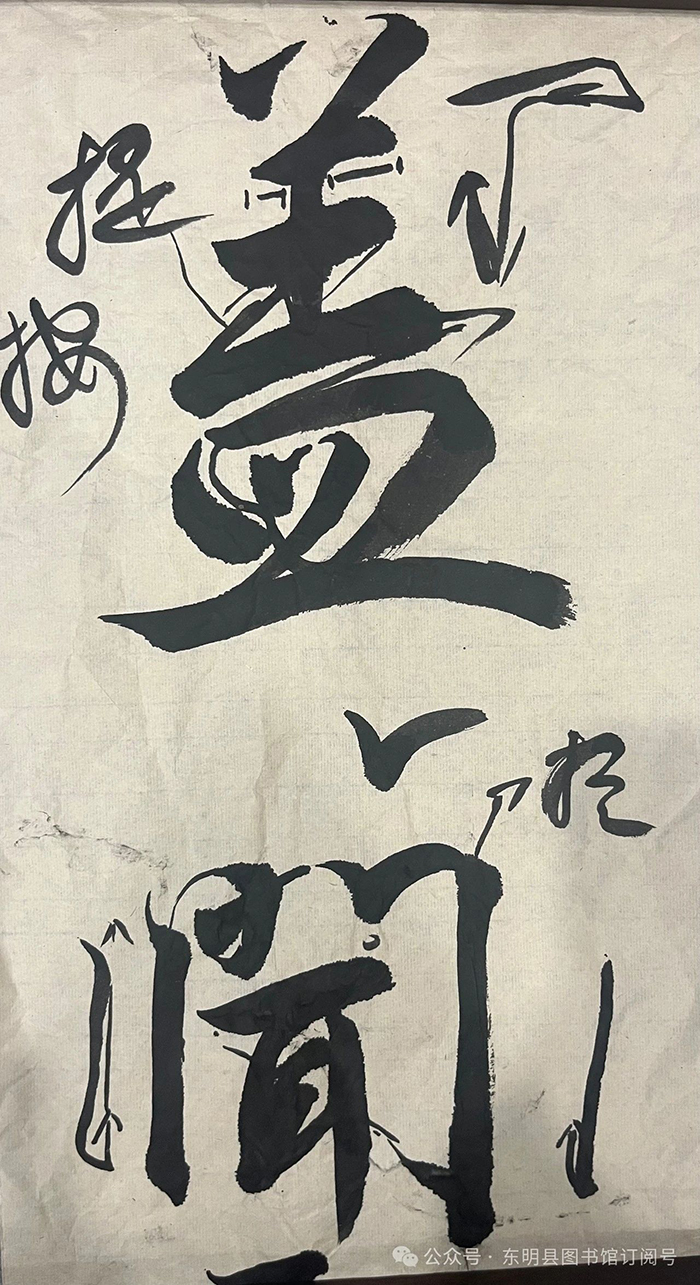 盖
提
按
聞
公众号 · 东明县图书馆订阅号